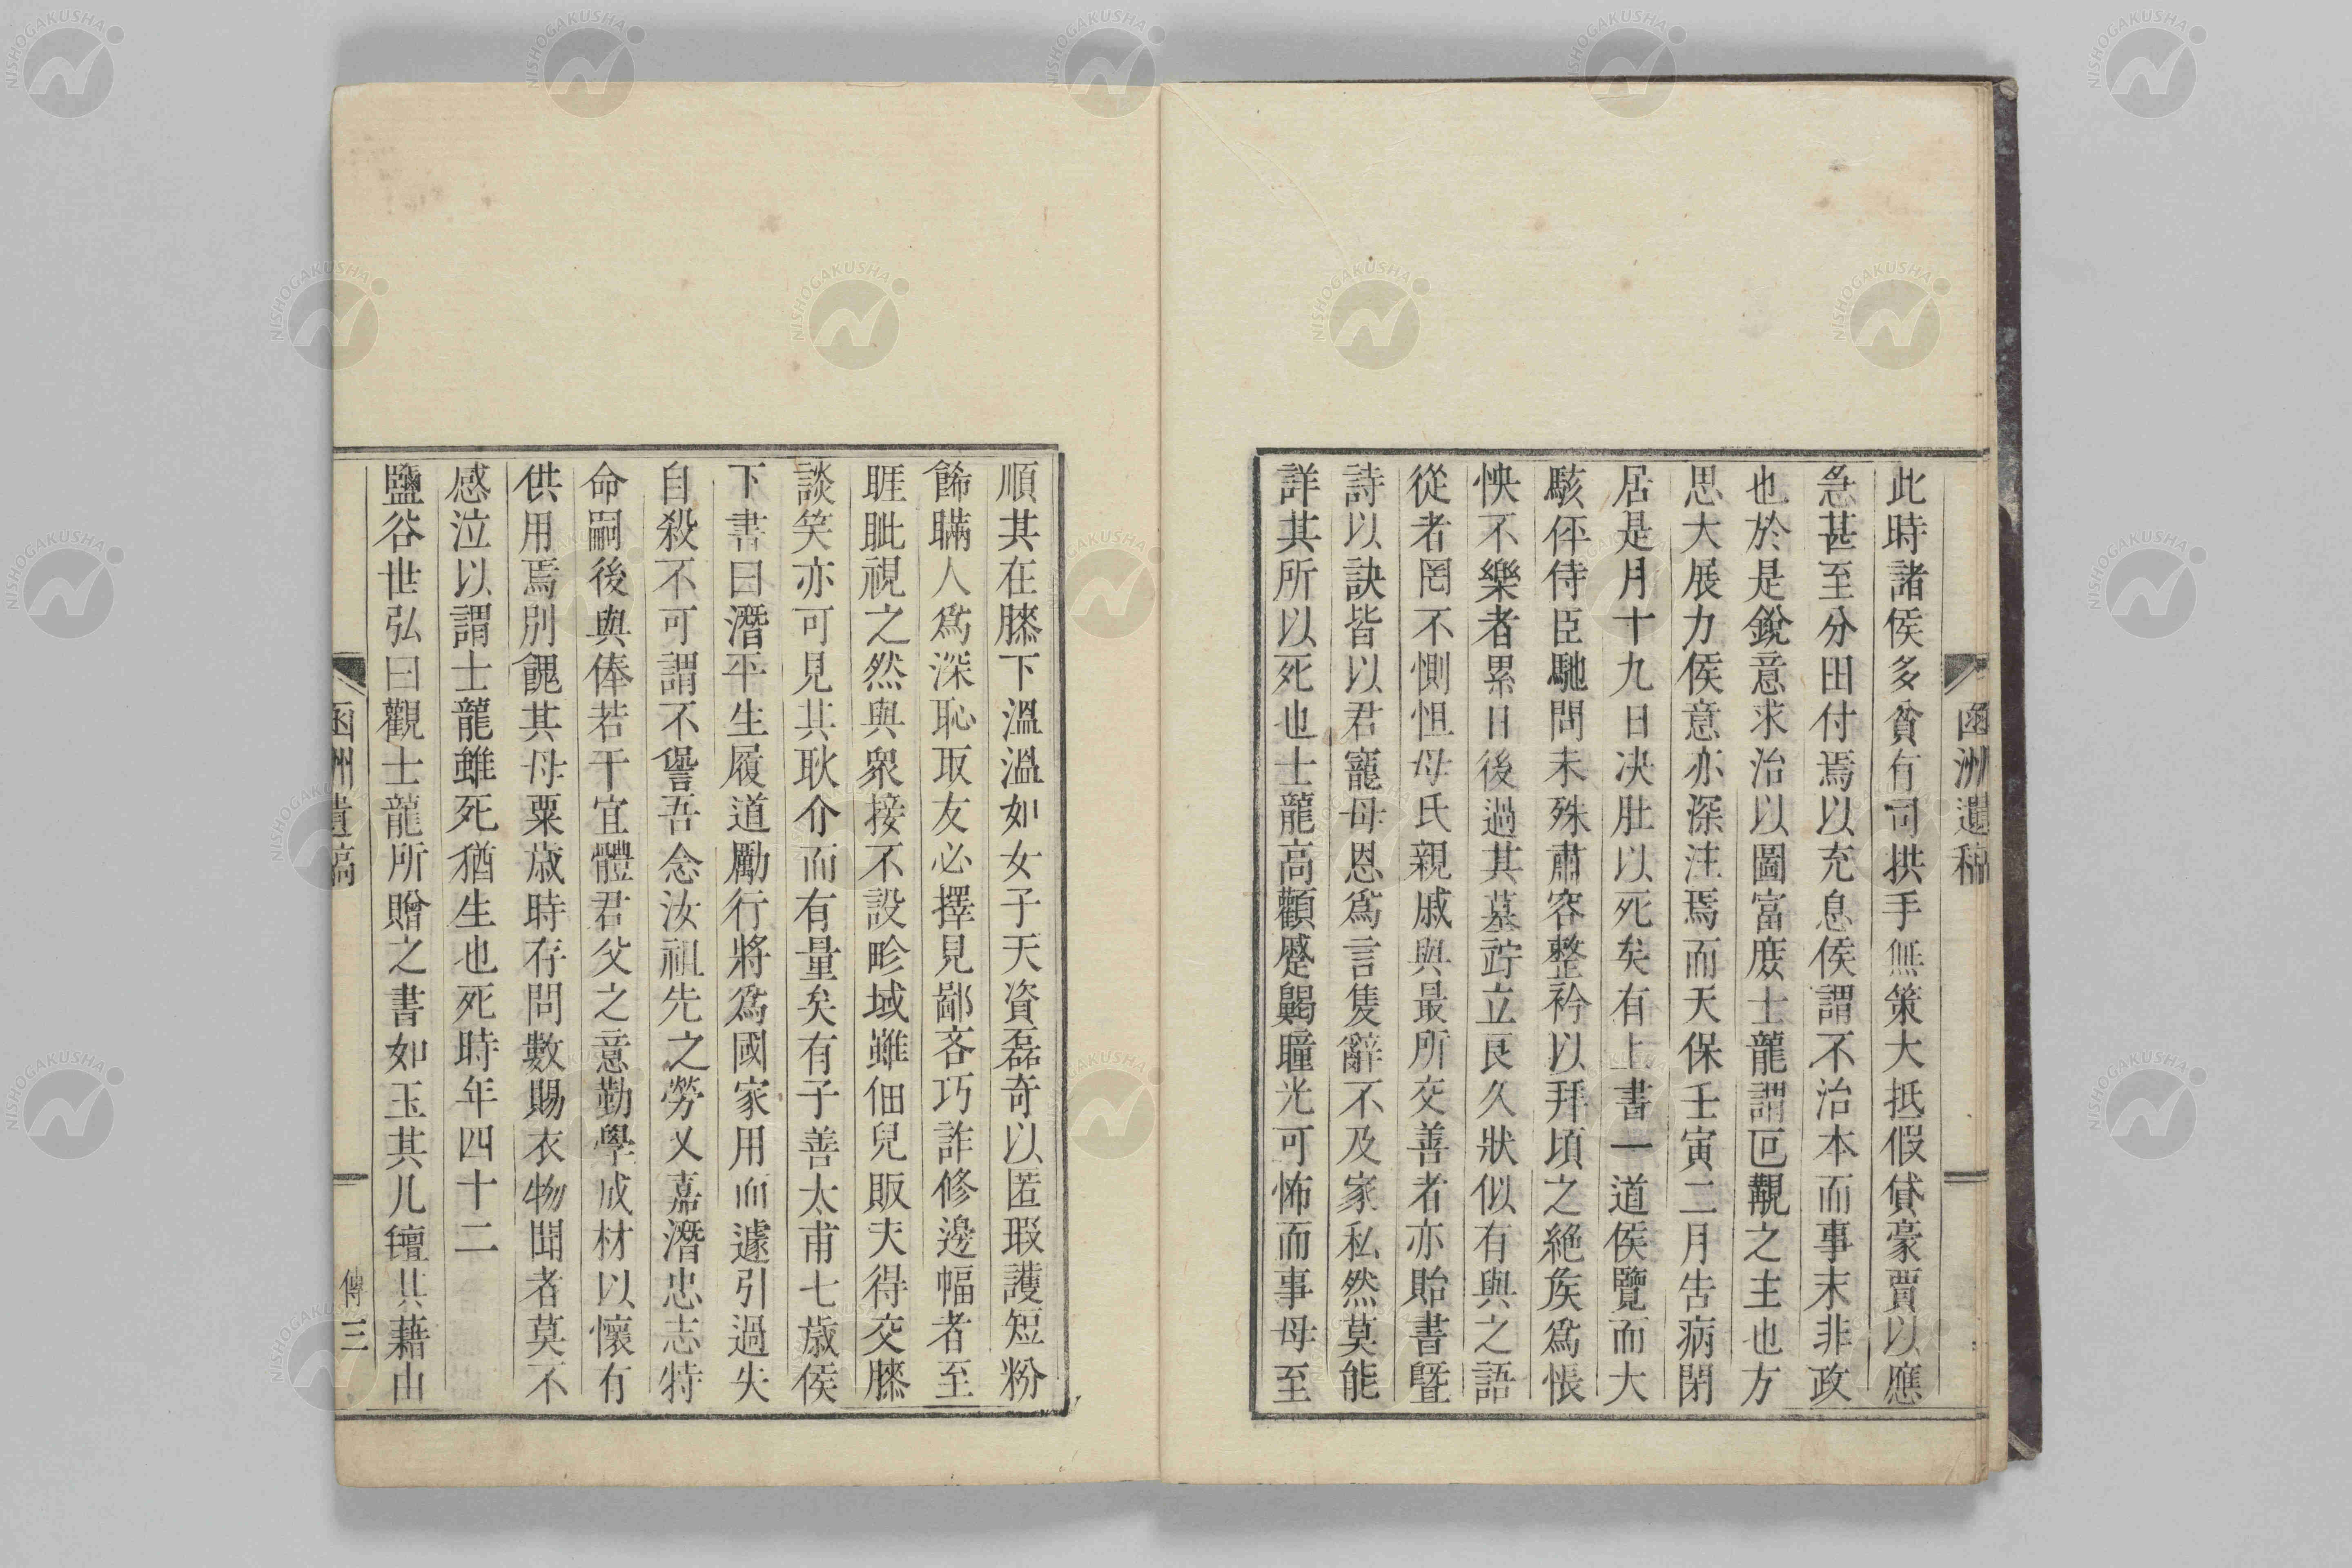 函洲遺稿
此時諸侯多貧有司拱手無策大抵假貸豪賈以應
急甚至分田付焉以充息侯謂不治本而事末非政
也於是銳意求治以圖富庶士龍謂叵觏之主也方
思大展力侯意亦深注焉而天保壬寅二月告病閉
居是月十九日决肚以死矣有上書一道侯覽而大
駭伻侍臣馳問未殊肅容整衿以拜頃之絕矦爲悵
怏不樂者累日後過其墓竚立良久狀似有與之語
從者罔不惻怛母氏親戚與最所交善者亦貽書曁
詩以訣皆以君寵母恩爲言隻辭不及家私然莫能
詳其所以死也士龍高顴蹙齃瞳光可怖而事母至
順其在膝下溫溫如女子天資磊奇以匿瑕護短粉
餙瞞人爲深恥取友必擇見鄙吝巧詐修邊幅者至
睚眦視之然與衆接不設畛域雖佃兒販夫得交膝
談笑亦可見其耿介而有量矣有子善太甫七歲侯
下書曰潛平生履道勵行將爲國家用而遽引過失
自殺不可謂不諐吾念汝祖先之勞又嘉潛忠志特
命嗣後與俸若干宜體君父之意勤學成材以懷有
供用焉別餽其母粟歲時存問數賜衣物聞者莫不
感泣以謂士龍雖死猶生也死時年四十二
鹽谷世弘曰觀士龍所贈之書如玉其儿其藉山
函洲遺稿
傳三
NISHOGAKUSHA